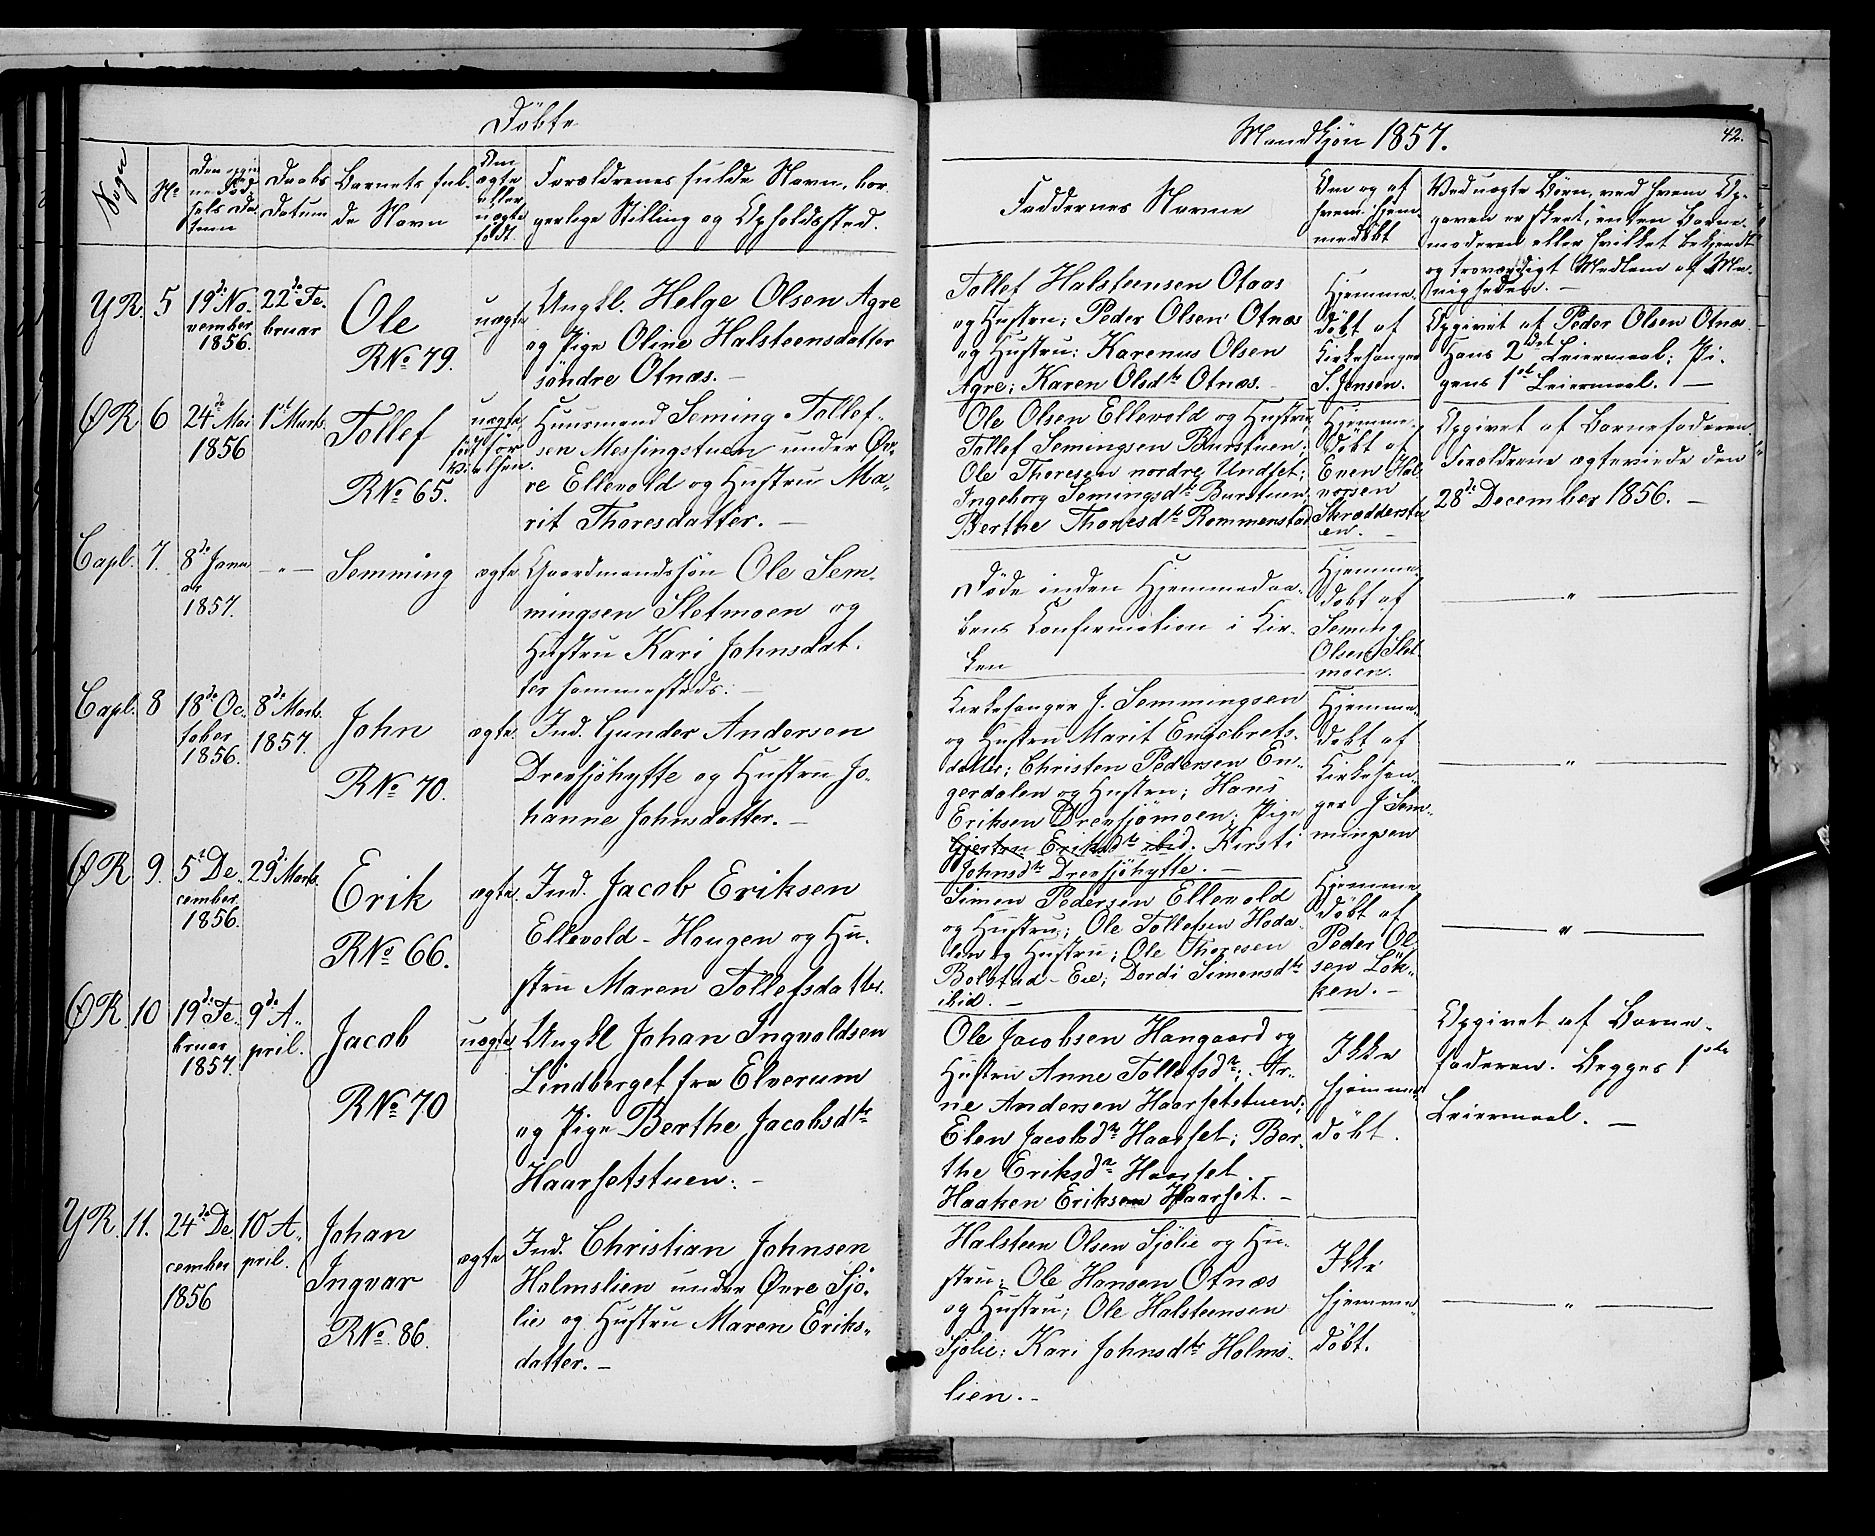 Døbte
Mandkjøn 1857.
42.
Sogn
No
Den opgivne Fødsels Datum
Daabs Datum
Barnets fulde Navn
Om ægte eller uægte født.
Forældrenes fulde Navn, borgerlige Stilling og Opholdssted.
Faddernes Navne
Om og af hvem hjemmedøbt
Ved uægte Børn, ved hvem Opgaven er skeet, enten Barnemoderen eller hvilket bekjendt og troværdigt Medlem af Menigheden. —
YR. 5
19de November 1856.
22de Februar
Ole
RNo 79.
uægte
Ungkl. Helge Olsen Agre
og Pige Oline Halsteensdatter
søndre Otnæs. —
Tollef Halsteensen Otnæs
og Hustru; Peder Olsen Otnæs
og Hustru; Karenus Olsen
Agre; Karen Olsdtr Otnæs. —
Hjemmedøbt af Kirkesanger S. Jensen.
Opgivet af Peder Olsen Otnæs
Hans 2det Leiermaal; Pigens 1ste Leiermaal. —
ØR. 6
24de Mai 1856
1ste Marts
Tollef
RNo 65.
uægte
født før
Vielsen.
Huusmand Seming Tollefsen Messingstuen under Øvre Ellevold og Hustru Marit Thoresdatter. —
Ole Olsen Ellevold og Hustru
Tollef Semingsen Burstuen;
Ole Thoresen nordre Undset;
Ingeborg Semingsdtr Burstuen;
Berthe Thoresdtr Rommenstad
Hjemmedøbt af Even Halvorsen Skrædderstuen. —
Opgivet af Barnefaderen.
Forældrene ægteviede den
28de December 1856. —
Capl. 7.
8de Januar 1857.
— " —
Semming
ægte
Gaardmandssøn Ole Semmingsen Sletmoen og
Hustru Kari Johnsdatter sammesteds. —
Døde inden Hjemmedaabens Confirmation i Kirken
Hjemmedøbt af Seming Olsen Sletmoen.
— " —
Capl. 8
18de October 1856.
8de Marts 1857.
John
RNo 70.
ægte
Ind. Gunder Andersen
Drevsjøhytte og Hustru Johanne Johnsdatter. —
Kirkesanger J. Semmingsen
og Hustru Marit Engebretsdatter; Christen Pedersen Engerdalen og Hustru; Hans
Eriksen Drevsjømoen; Pige
Gjertru Eriksdtr ibid. Kirsti
Johnsdtr Drevsjøhytte. —
Hjemmedøbt af Kirkesanger J. Semmingsen
— " —
ØR. 9.
5te December 1856.
29de Marts
Erik
RNo 66.
ægte
Ind. Jacob Eriksen
Ellevold-Hougen og Hustru Maren Tollefsdatter.
Simen Pedersen Ellevold
og Hustru; Ole Tollefsen Hodalen og Hustru; Ole Thoresen
Bolstad-Eie; Dordi Simensdtr
ibid. —
Hjemmedøbt af Peder Olsen Løkken. —
— " —
ØR. 10
19de Februar 1857.
9de April.
Jacob
RNo 70
uægte
Ungkl Johan Ingvaldsen
Lindberget fra Elverum
og Pige Berthe Jacobsdtr
Haarsetstuen. —
Ole Jacobsen Haugaard og
Hustru Anne Tollefsdtr; Arne Andersen Haarsetstuen;
Elen Jacobsdtr Haarset; Berthe Eriksdtr Haarset
Haaken Eriksen Haarset. —
Ikke hjemmedøbt.
Opgivet af Barnefaderen. Begges 1ste
Leiermaal. —
YR. 11.
24de December 1856
10 April.
Johan
Ingvar
RNo. 86.
ægte
Ind. Christian Johnsen
Holmslien under Øvre Sjølie og Hustru Maren Eriksdatter. —
Halsteen Olsen Sjølie og Hustru; Ole Hansen Otnæs
og Hustru; Ole Halsteensen
Sjølie; Kari Johnsdtr Holmslien. —
Ikke hjemmedøbt.
— " —